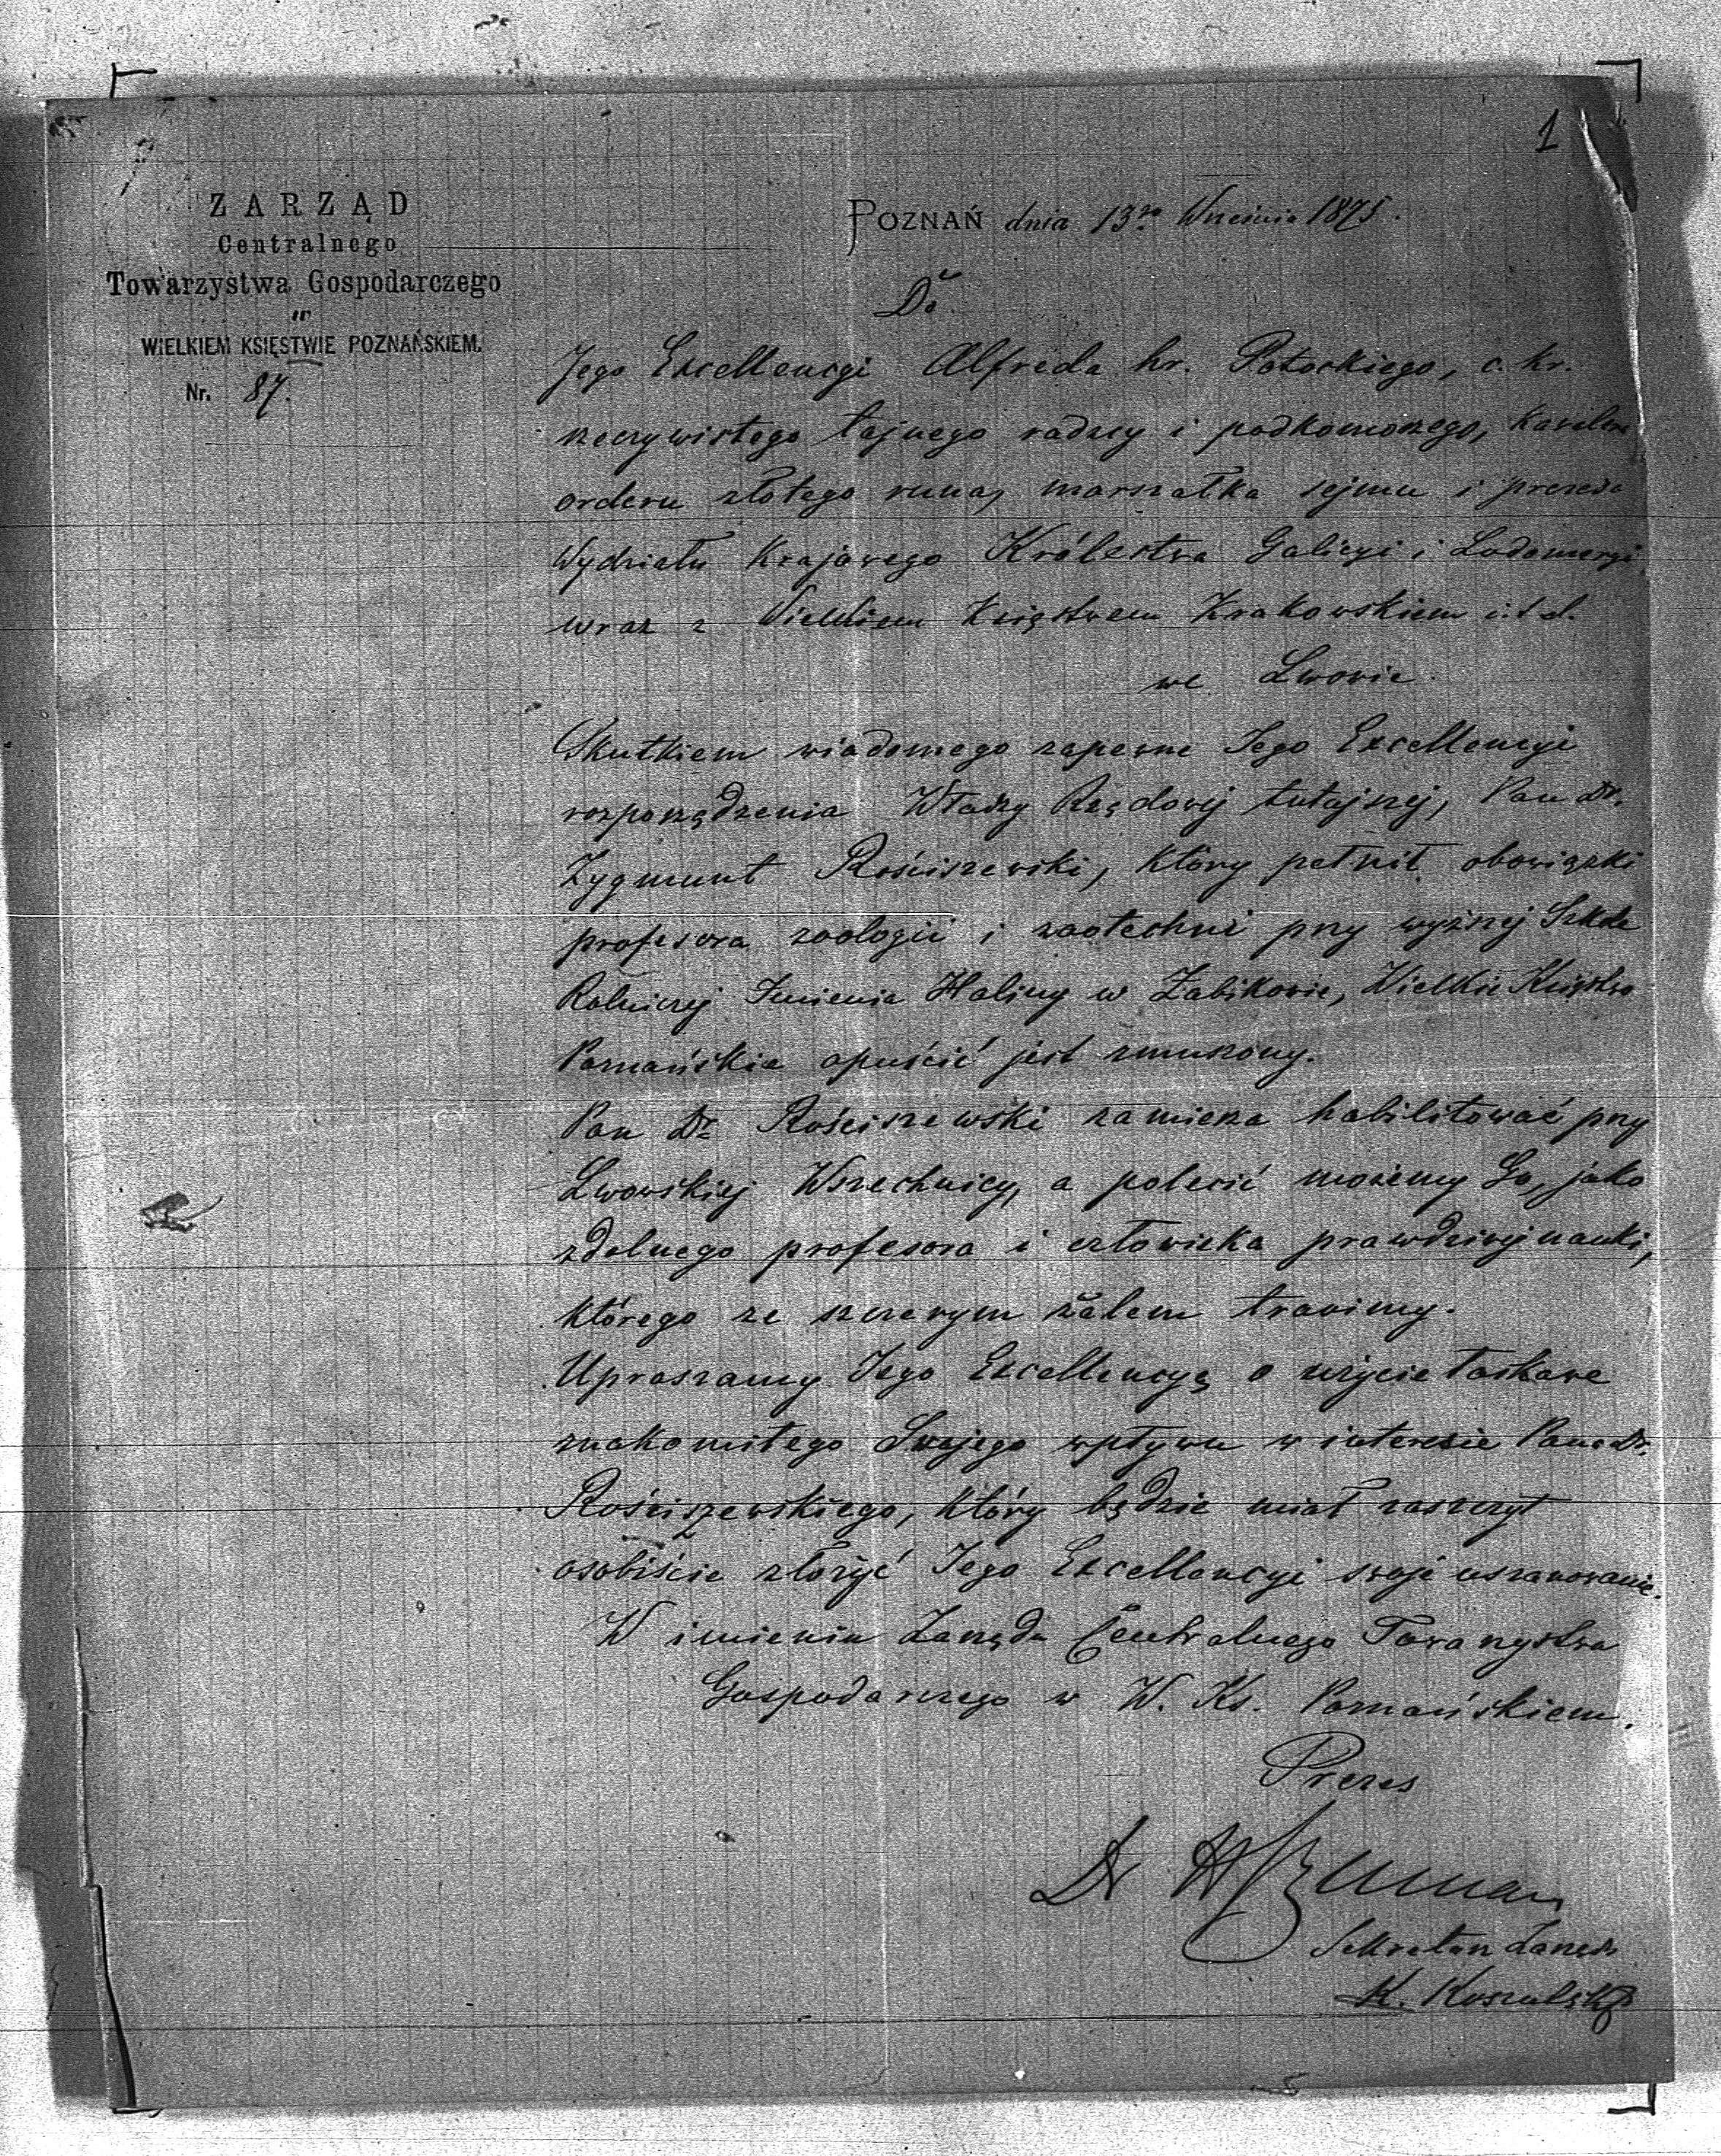 1
ZARZĄD
Centralnego
Towarzystwa Gospodarczego
w
WIELKIEM KSIĘSTWIE POZNAŃSKIEM.
Nr. 87.
POZNAŃ dnia 13go Września 1875.
Do
Jego Excellencyi Alfreda hr. Potockiego, c. kr.
rzeczywistego tajnego radzcy i podkomorzego, kawalera
orderu złotego runa, marszałka sejmu i prezesa
Wydziału Krajowego Królestwa Galicyi i Lodomeryi
wraz z Wielkiem Księstwem Krakowskiem i.t.d.
we Lwowie.
Skutkiem wiadomego zapewne Jego Excellencyi
rozporządzenia Władzy Rządowéj tutajszej, Pan Dr.
Zygmunt Rościszewski, który pełnił obowiązki
profesora zoologii i zootechni przy wyższej Szkole
Rolniczéj Imienia Haliny w Żabikowie, Wielkie Księstwo
Poznańskie opuścić jest zmuszony.
Pan Dr. Rościszewski zamierza habilitować przy
Lwowskiej Wszechnicy, a polecić możemy Go, jako
zdolnego profesora i człowieka prawdziwej nauki,
którego ze szczerym żalem tracimy.
Upraszamy Jego Excellencyą o użycie łaskawe
znakomitego Swojego wpływu w interesie Pana Dr.
Rościszewskiego, który będzie miał zaszczyt
osobiście złożyć Jego Excellencyi swoje uszanowanie.
W imieniu Zarządu Centralnego Towarzystwa
Gospodarczego w W. Ks. Poznańskiem.
Prezes
Dr H Szuman
Sekretarz Zarządu
K. Koszutski